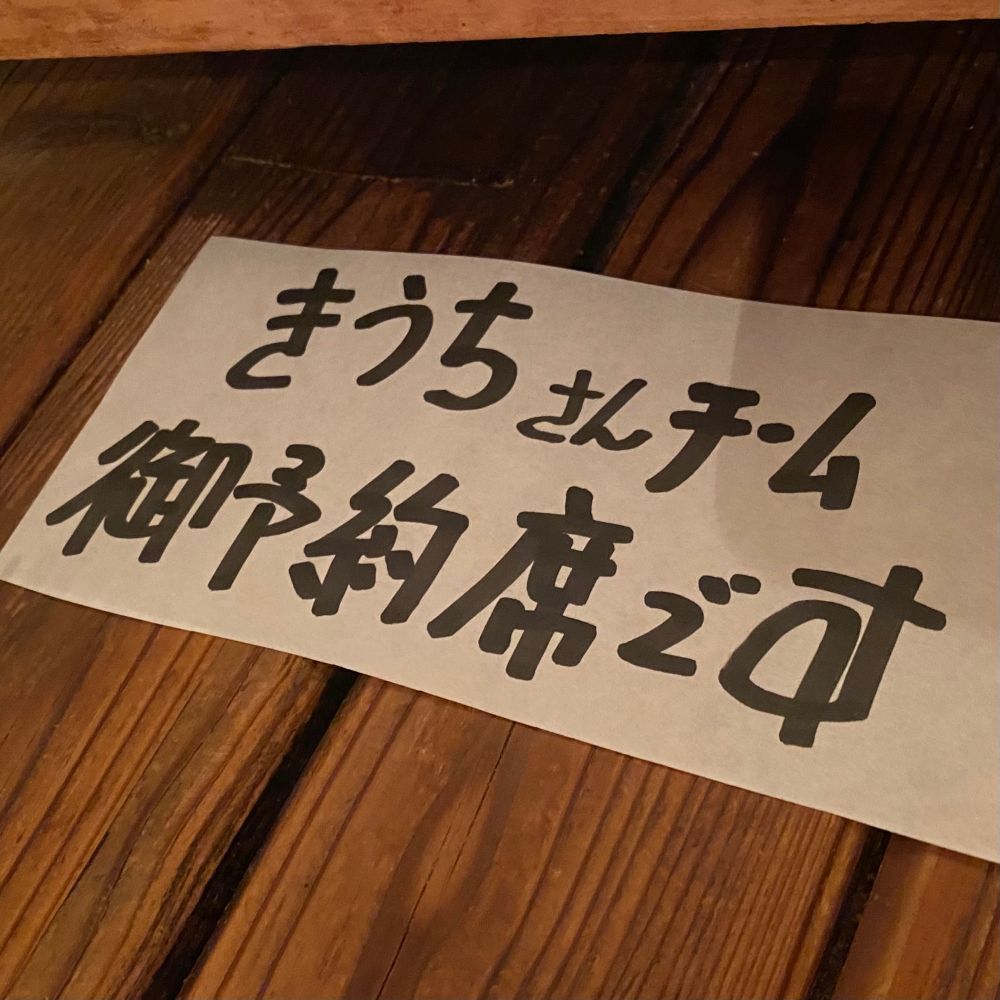 きうちさんチーム
御予約席です